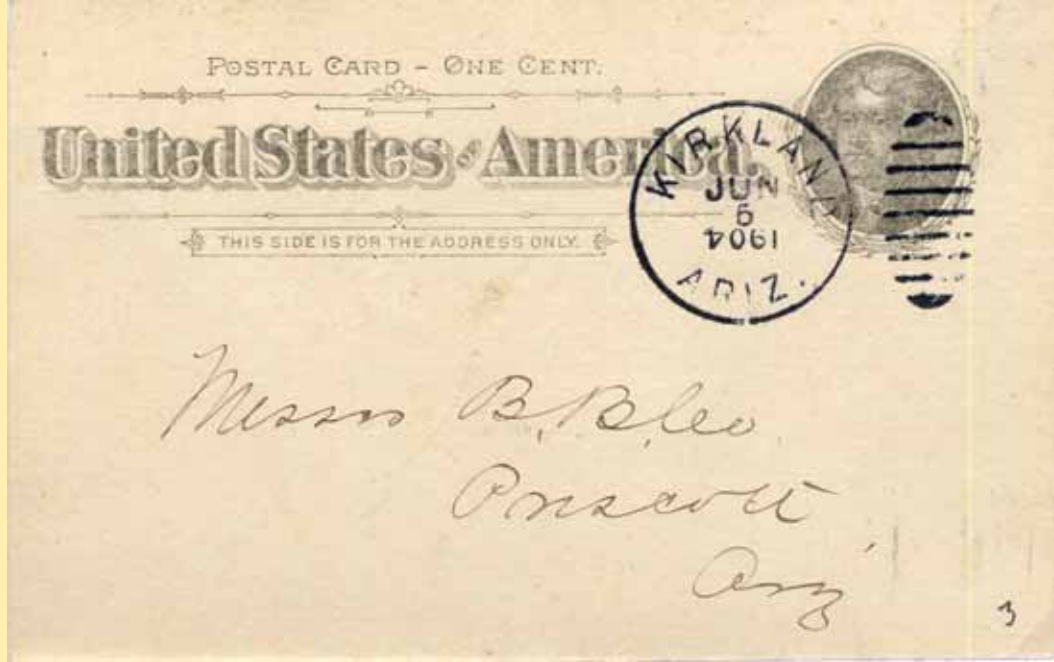 POSTAL CARD - ONE CENT.
United States of America.
THIS SIDE IS FOR THE ADDRESS ONLY.
KIRKLAND
JUN
5
1904
ARIZ.
Messrs B. B. Co
Prescott
Arz
3